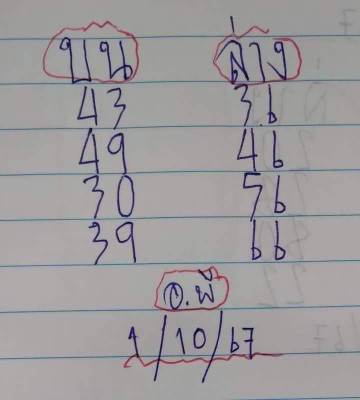 บน ล่าง
43 36
49 46
30 56
39 66
อ.พี
1/10/67